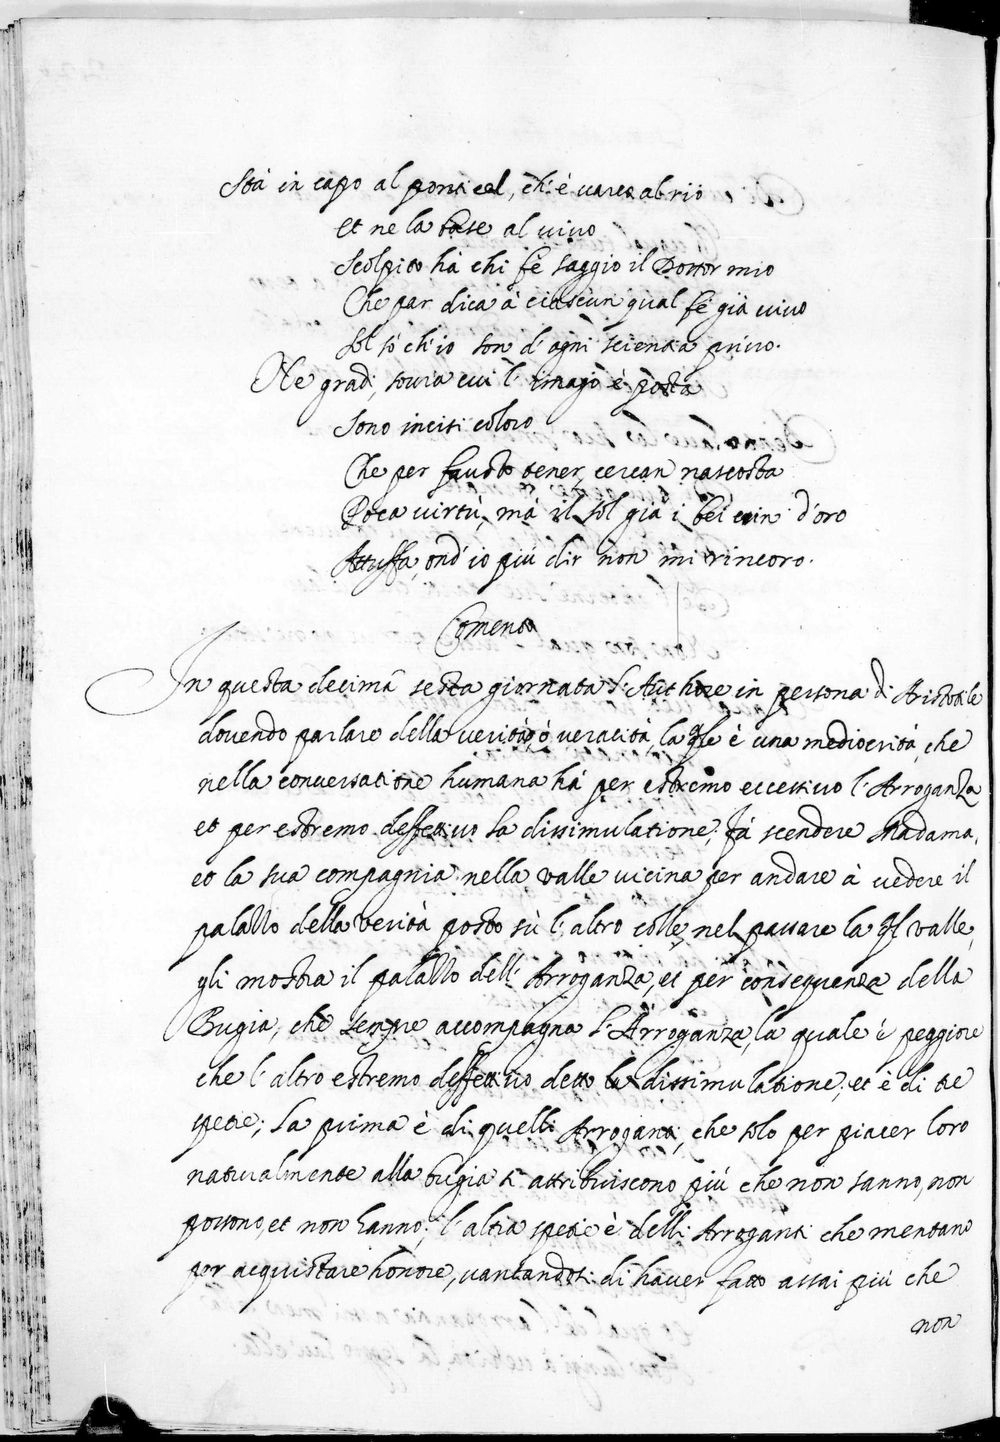 Stà in capo al ponticel, ch'è varco al rio
Et ne la base al vivo
Scolpito hà chi fè saggio il Dottor mio
Che par dica à ciascun qual fè già vivo
Sol sò ch'io son d'ogni scientia privo.
Ne gradi, sovra cui l'imago è posta
Sono incisi coloro
Che per fausto tener, cercan nascosta
Poca virtù, mà il sol già i bei crin d'oro
Attuffa, ond'io più dir non mi rincoro.
Comento
In questa decima sesta giornata l'Authore in persona d'Aristotile
dovendo parlare della verità, ò veracità, la qle è una mediocrità, che
nella conversatione humana hà per estremo eccessivo l'Arroganza
et per estremo deffettivo la dissimulatione; fà scendere Madama,
et la sua compagnia nella valle vicina per andare à vedere il
palazzo della verità posto sù l'altro colle, nel passare la ql valle,
gli mostra il palazzo dell'Arroganza, et per consequenza della
Bugia, che sempre accompagna l'Arroganza, la quale è peggiore
che l'altro estremo deffettivo detto la dissimulatione, et è di tre
spetie; La prima è di quelli Arroganti, che solo per piacer loro
naturalmente alla bugia si attribuiscono più che non sanno, non
possono, et non hanno; l'altra spetie è delli Arroganti che mentano
per acquistare honore, vantandosi di haver fatto assai più che
non